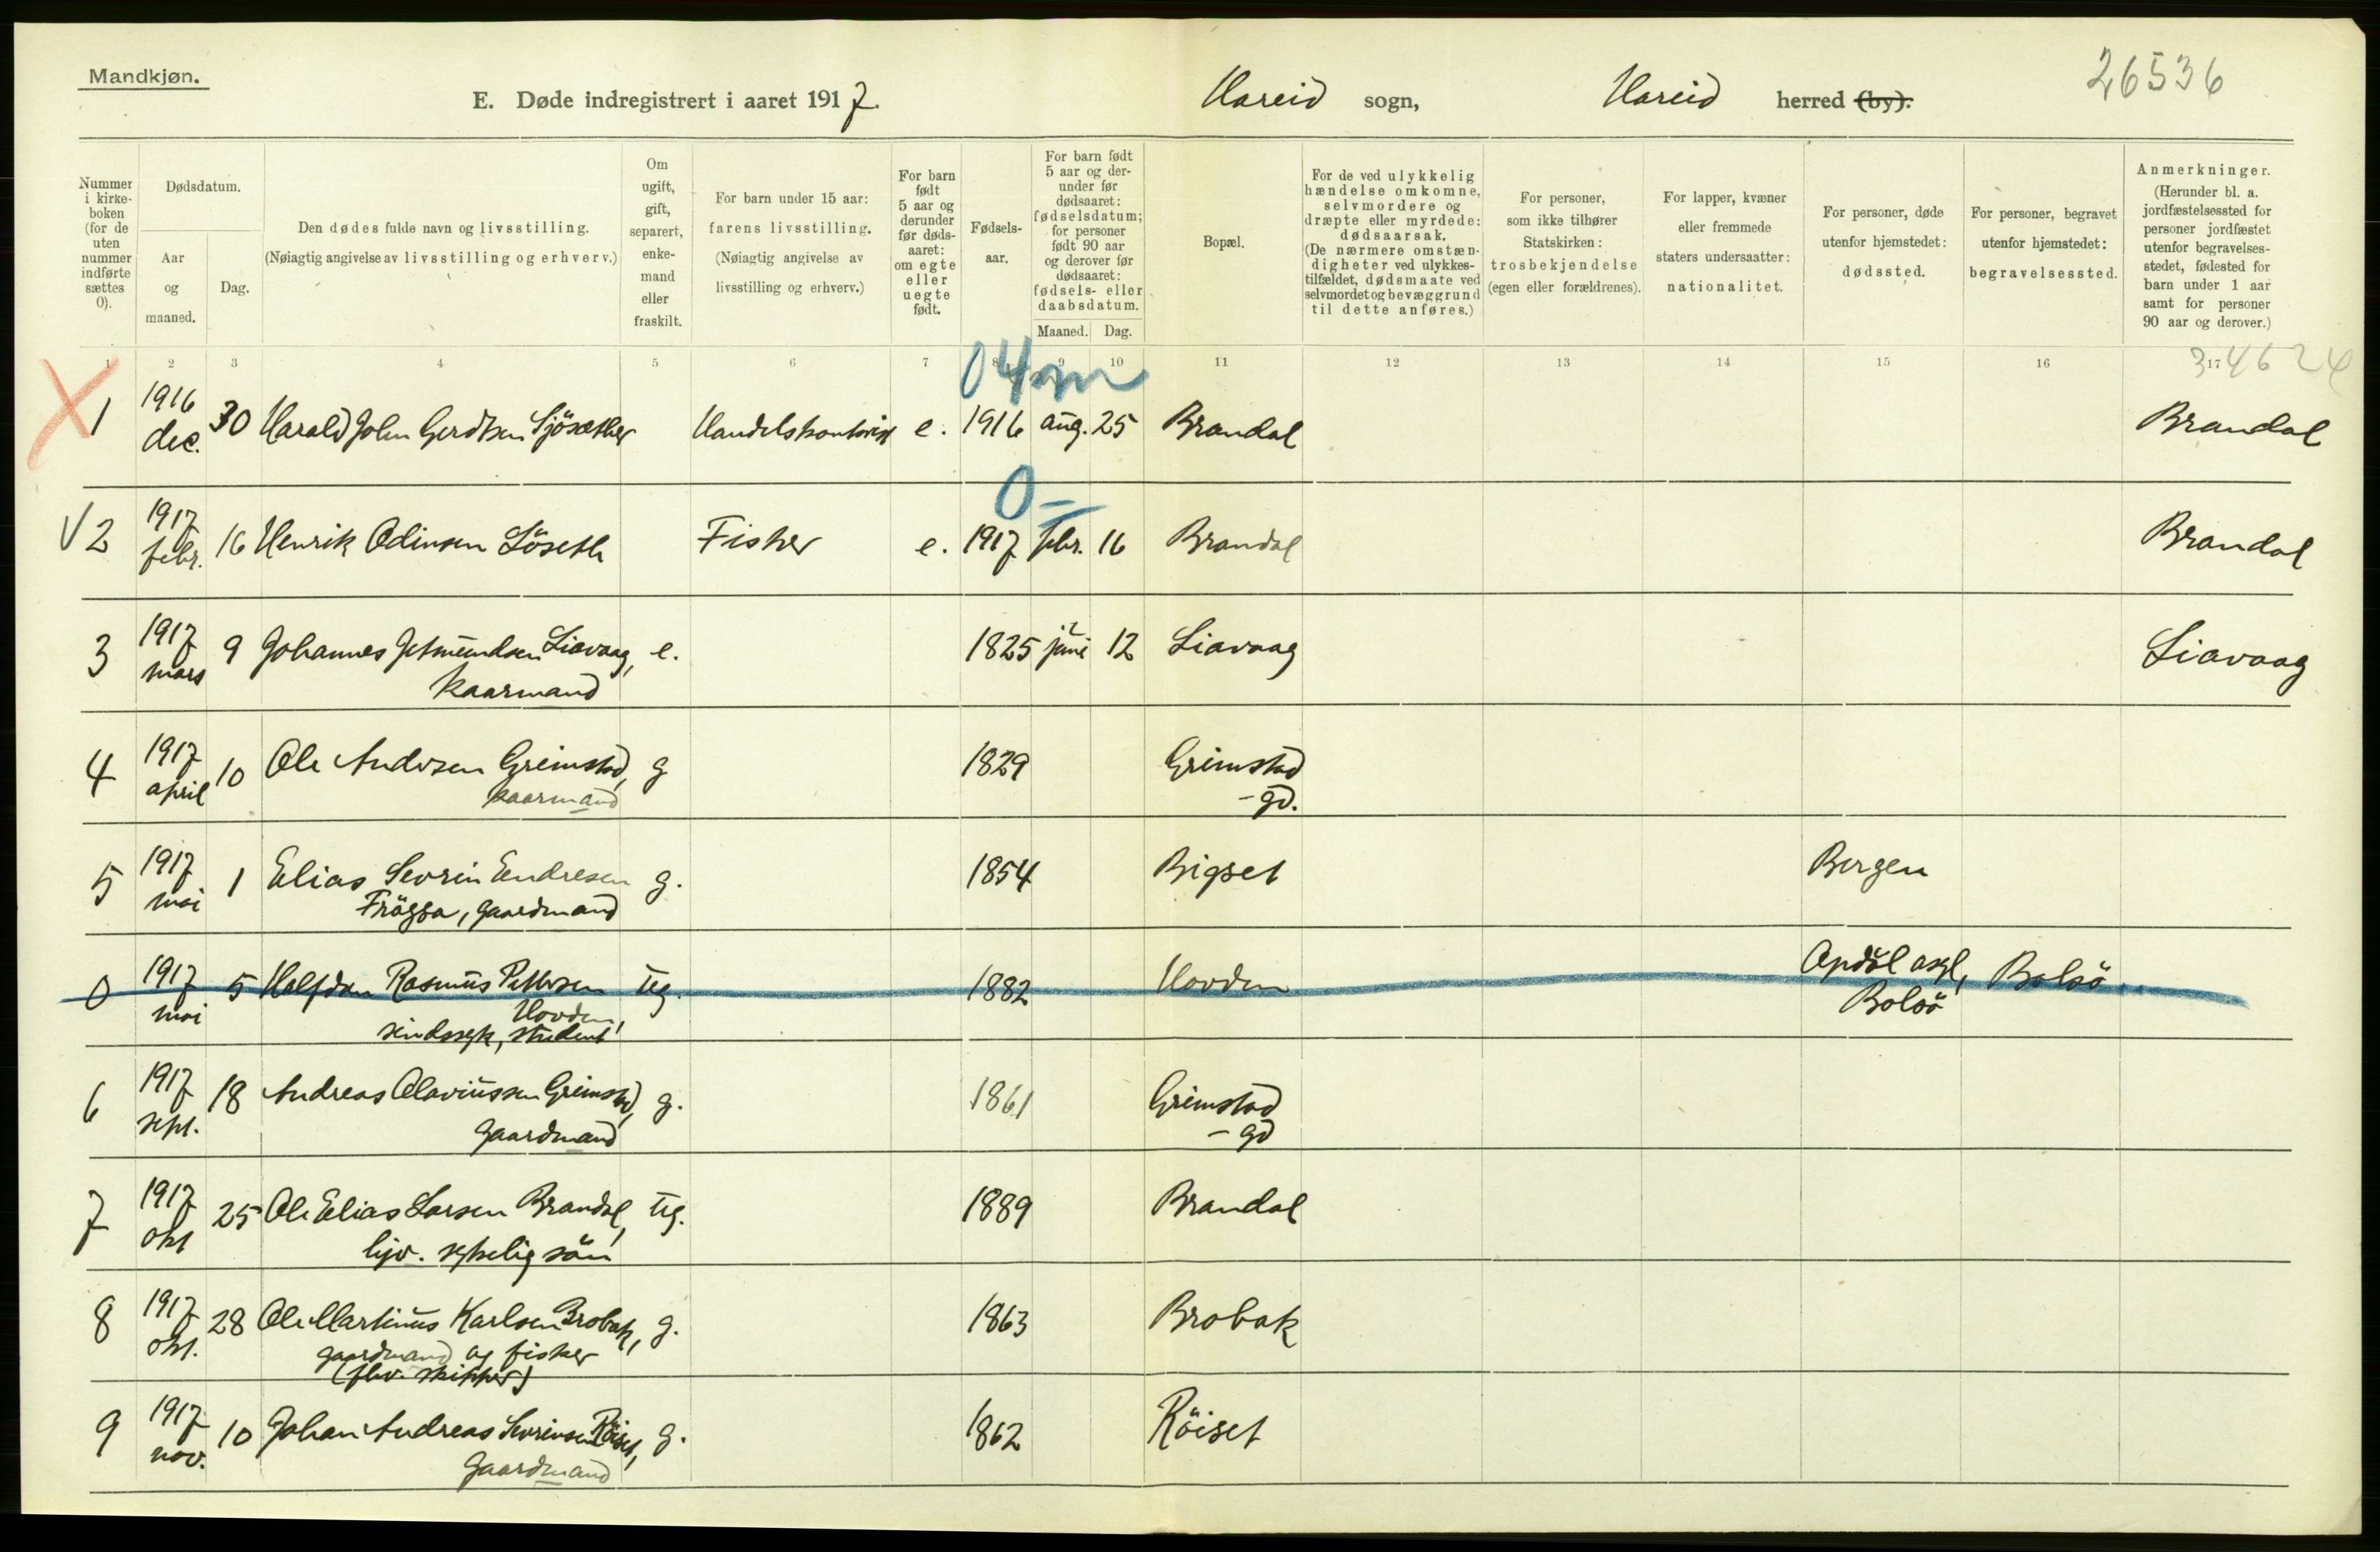 Mandkjøn.
E. Døde indregistrert i aaret 1917.
Hareid sogn,
Hareid herred (by).
26536
Nummer i kirkeboken (for de uten nummer indførte sættes 0).
Dødsdatum.
Aar og maaned.
Dag.
Den dødes fulde navn og livsstilling.
(Nøiagtig angivelse av livsstilling og erhverv.)
Om ugift, gift, separert, enkemand eller fraskilt.
For barn under 15 aar: farens livsstilling.
(Nøiagtig angivelse av livsstilling og erhverv.)
For barn født 5 aar og derunder før dødsaaret: om egte eller uegte født.
Fødselsaar.
For barn født 5 aar og derunder før dødsaaret: fødselsdatum; for personer født 90 aar og derover før dødsaaret: fødsels- eller daabsdatum.
Maaned. Dag.
Bopæl.
For de ved ulykkelig hændelse omkomne, selvmordere og dræpte eller myrdede: dødsaarsak.
(De nærmere omstændigheter ved ulykkestilfældet, dødsmaate ved selvmordet og bevæggrund til dette anføres.)
For personer, som ikke tilhører Statskirken: trosbekjendelse (egen eller forældrenes).
For lapper, kvæner eller fremmede staters undersaatter: nationalitet.
For personer, døde utenfor hjemstedet: dødssted.
For personer, begravet utenfor hjemstedet: begravelsessted.
Anmerkninger.
(Herunder bl. a. jordfæstelsessted for personer jordfæstet utenfor begravelsesstedet, fødested for barn under 1 aar samt for personer 90 aar og derover.)
1 2 3 4 5 6 7 8 9 10 11 12 13 14 15 16 17
34624
04m
1 1916 dec. 30 Harald John Gerdtsen Sjösæther Handelskontorist e. 1916 aug. 25 Brandal Brandal
0 –
V 2 1917 febr. 16 Henrik Odinsen Löseth Fisker e. 1917 febr. 16 Brandal Brandal
3 1917 mars 9 Johannes Jetmundsen Liavaag, e. 1825 juni 12 Liavaag Liavaag
kaarmand
4 1917 april 10 Ole Andersen Grimstad, g 1829 Grimstad
kaarmand – gd.
5 1917 mai 1 Elias Sevrin Endresen g. 1854 Bigset Bergen
gaardmand
0 1917 mai 5 Halfdan Rasmus Pettersen ug. 1882 Hovden Opdöl asyl, Bolsö
Hovden, Bolsö
sindssyk, student
6 1917 sept. 18 Andreas Olaviussen Grimstad, g. 1861 Grimstad
gaardmand – gd
7 1917 okt 25 Ole Elias Larsen Brandal, ug. 1889 Brandal
hjv. sykelig sön
8 1917 okt. 28 Ole Martinus Karlsen Brobak, g. 1863 Brobak
gaardmand og fisker
(fhv. skipper)
9 1917 nov. 10 Johan Andreas Sevrinsen Röiset, g. 1862 Röiset
gaardmand